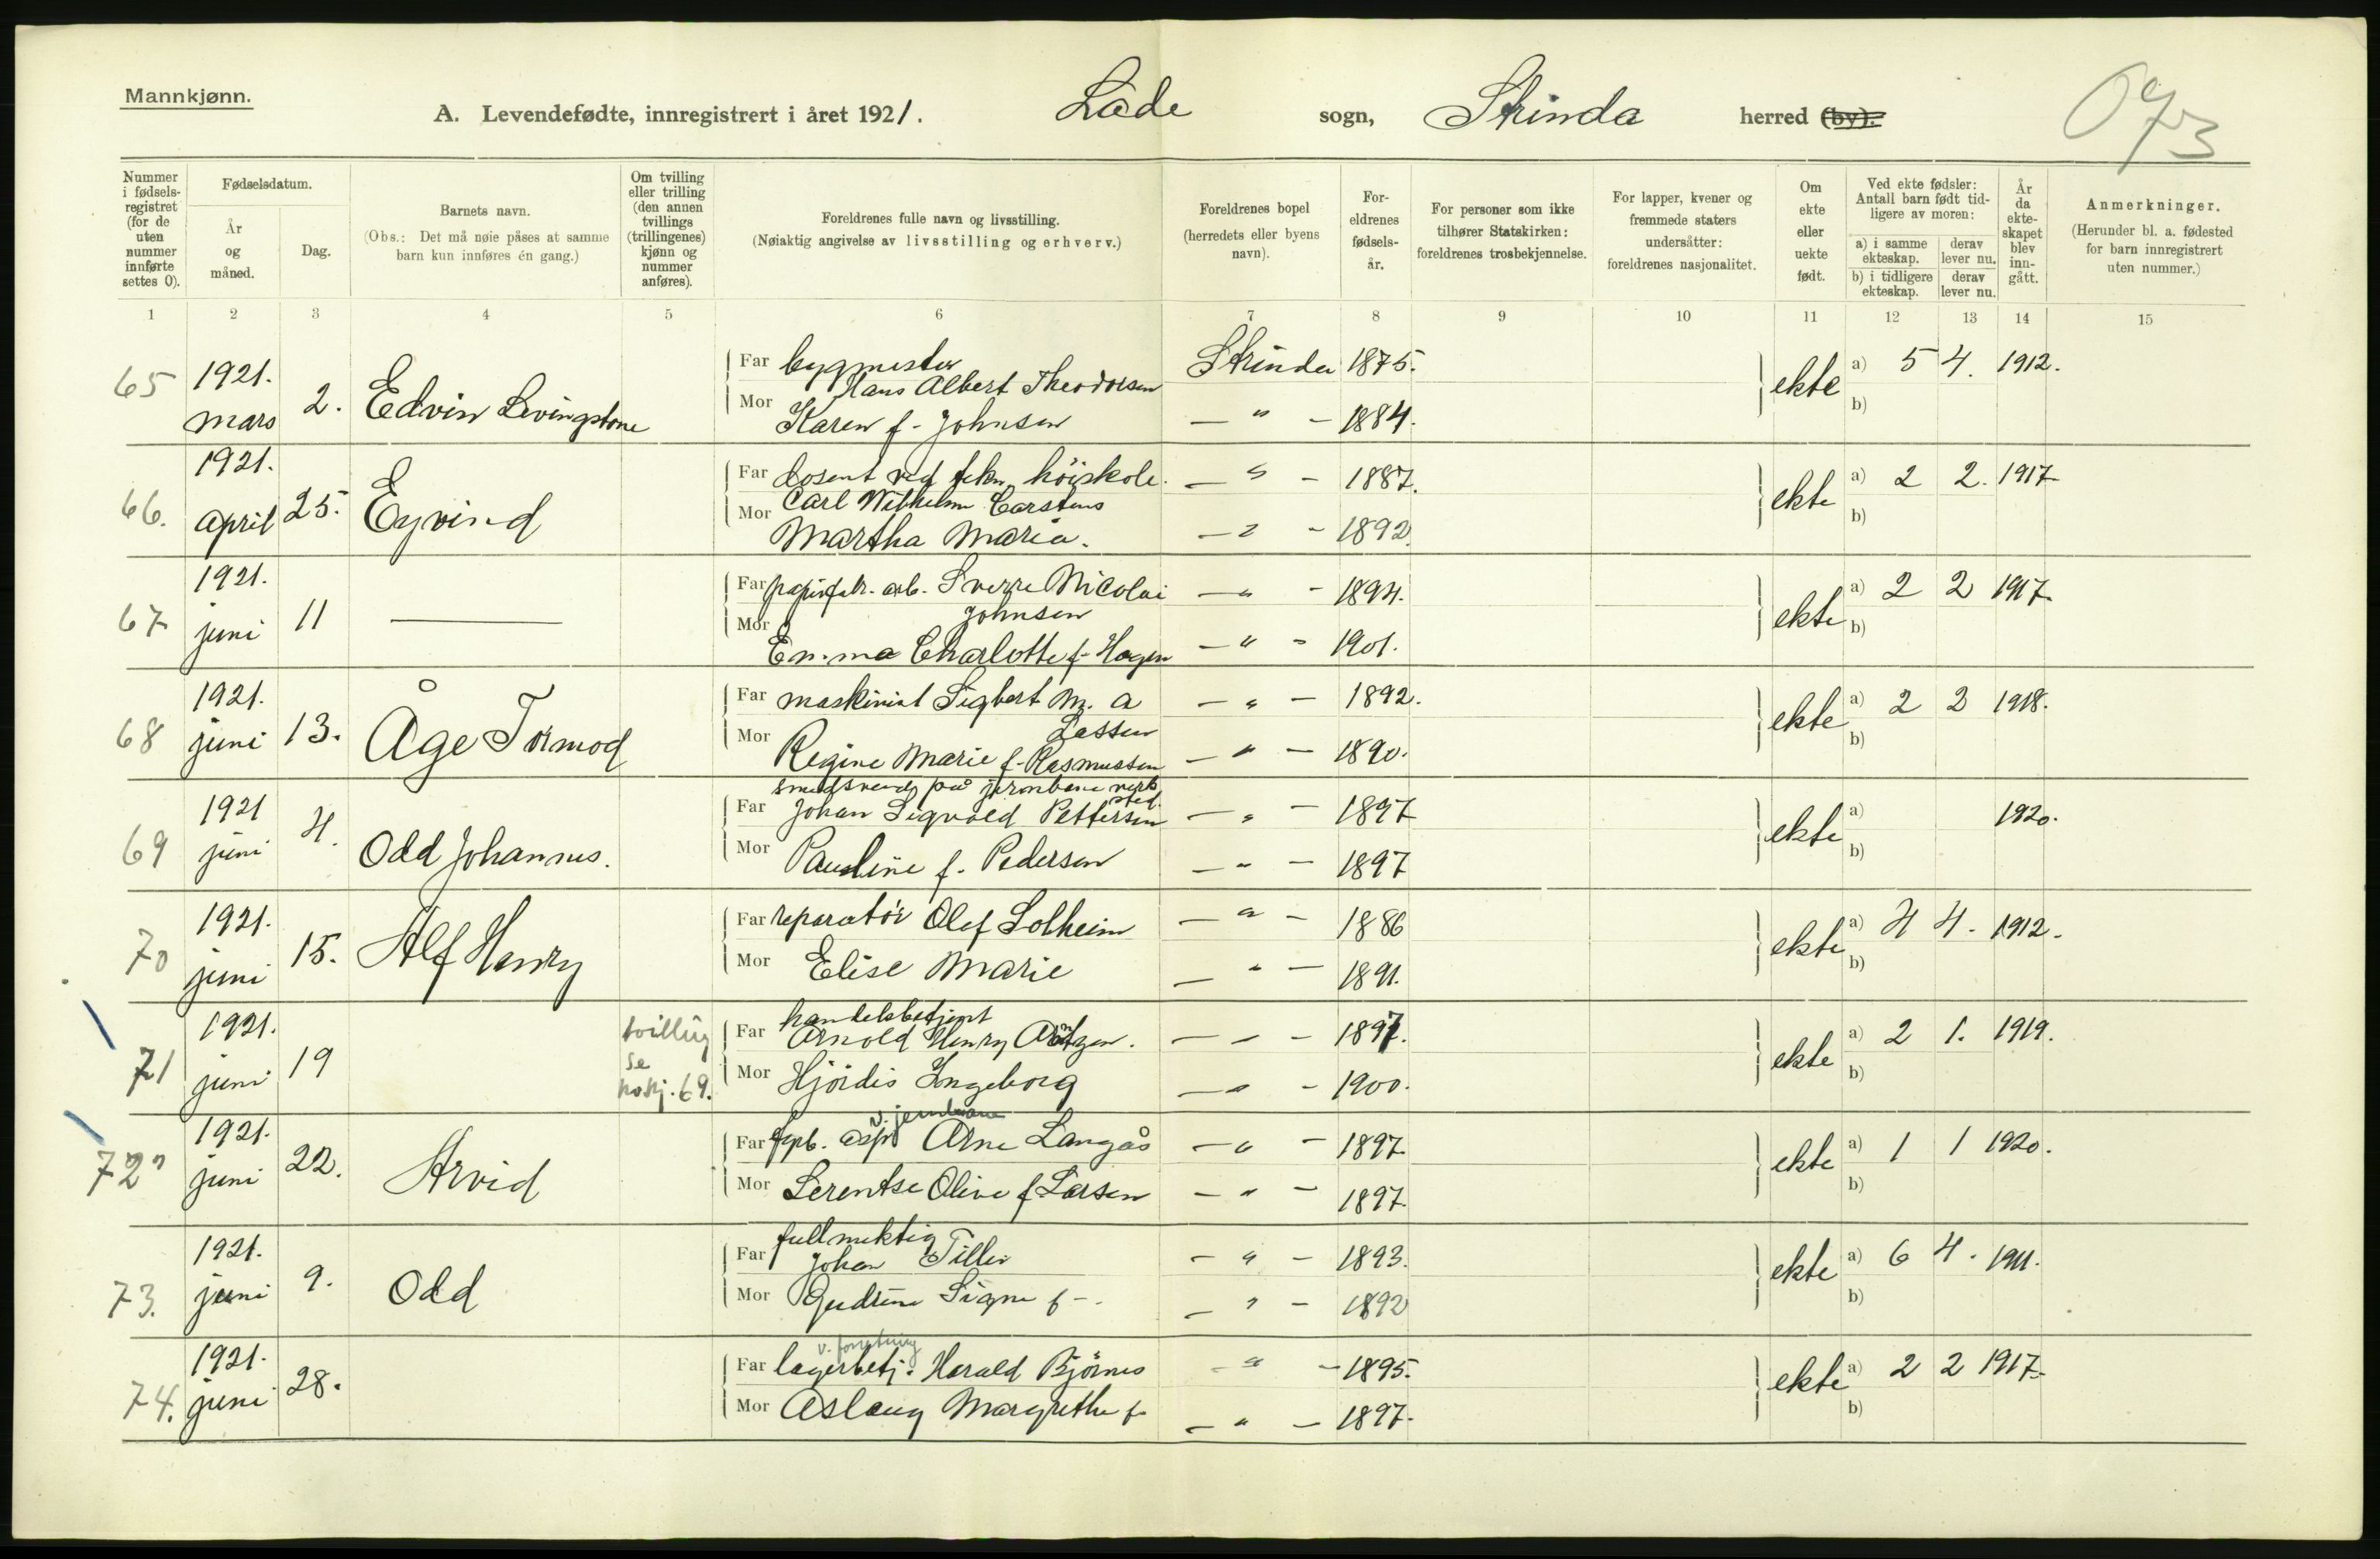 Mannkjønn.
A. Levendefødte, innregistrert i året 1921. Lade sogn, Strinda herred (by).
Nummer i fødselsregistret (for de uten nummer innførte settes 0).
Fødselsdatum.
År og måned.
Dag.
Barnets navn.
(Obs.: Det må nøie påses at samme barn kun innføres én gang.)
Om tvilling eller trilling (den annen tvillings (trillingenes) kjønn og nummer anføres).
Foreldrenes fulle navn og livsstilling.
(Nøiaktig angivelse av livsstilling og erhverv.)
Foreldrenes bopel (herredets eller byens navn).
Foreldrenes fødselsår.
For personer som ikke tilhører Statskirken: foreldrenes trosbekjennelse.
For lapper, kvener og fremmede staters undersåtter: foreldrenes nasjonalitet.
Om ekte eller uekte født.
Ved ekte fødsler: Antall barn født tidligere av moren:
a) i samme ekteskap. derav lever nu.
b) i tidligere ekteskap. derav lever nu.
År da ekteskapet blev inngått.
Anmerkninger.
(Herunder bl. a. fødested for barn innregistrert uten nummer.)
1 2 3 4 5 6 7 8 9 10 11 12 13 14 15
65 1921. mars 2. Edvin Levingstone
Far bygmester Hans Albert Theodorsen Strinda 1875. ekte a) 5 4. 1912.
Mor Karen f. Johnsen — " — 1884. b)
66. 1921. april 25. Eyvind
Far dosent ved tekn. höiskole. Carl Wilhelm Carstens — " — 1887. ekte a) 2 2. 1917
Mor Martha Maria. — " — 1892. b)
67 1921. juni 11 ———
Far papirfabr. arb. Sverre Nicolai Johnsen — " — 1894. ekte a) 2 2 1917
Mor Emma Charlotte f. Hagen — " — 1901. b)
68 1921. juni 13. Åge Tormod
Far maskinist Sigbert M. A Lassen — " — 1892. ekte a) 2 2 1918.
Mor Regine Marie f. Rasmussen — " — 1890. b)
69 1921 juni 4. Odd Johannes.
Far smedsvend på jernbane verksted. Johan Sigvald Pettersen — " — 1897 ekte a) 1920.
Mor Pauline f. Pedersen — " — 1897 b)
70 1921. juni 15. Alf Henry
Far reparatör Olef Solheim — " — 1886 ekte a) 4 4. 1912.
Mor Elise Marie — " — 1891. b)
71 1921. juni 19 tvilling se 69.
Far handelsbetjent Arnold Henry Arntzen. — " — 1897. ekte a) 2 1. 1919.
Mor Hjördis Ingeborg — " — 1900. b)
72 1921. juni 22. Arvid
Far asp. v. jernbane Arne Langås — " — 1897 ekte a) 1 1 1920.
Mor Serentse Olive f. Larsen — " — 1897 b)
73. 1921. juni 9. Odd
Far fullmektig Johan Tiller — " — 1893. ekte a) 6 4. 1911.
Mor Gudrun Signe f — — " — 1892 b)
74. 1921. juni 28.
Far lagerbetj. v. forretning Harald Björnes — " — 1895. ekte a) 2 2 1917
Mor Aslaug Margrethe f. — " — 1897. b)